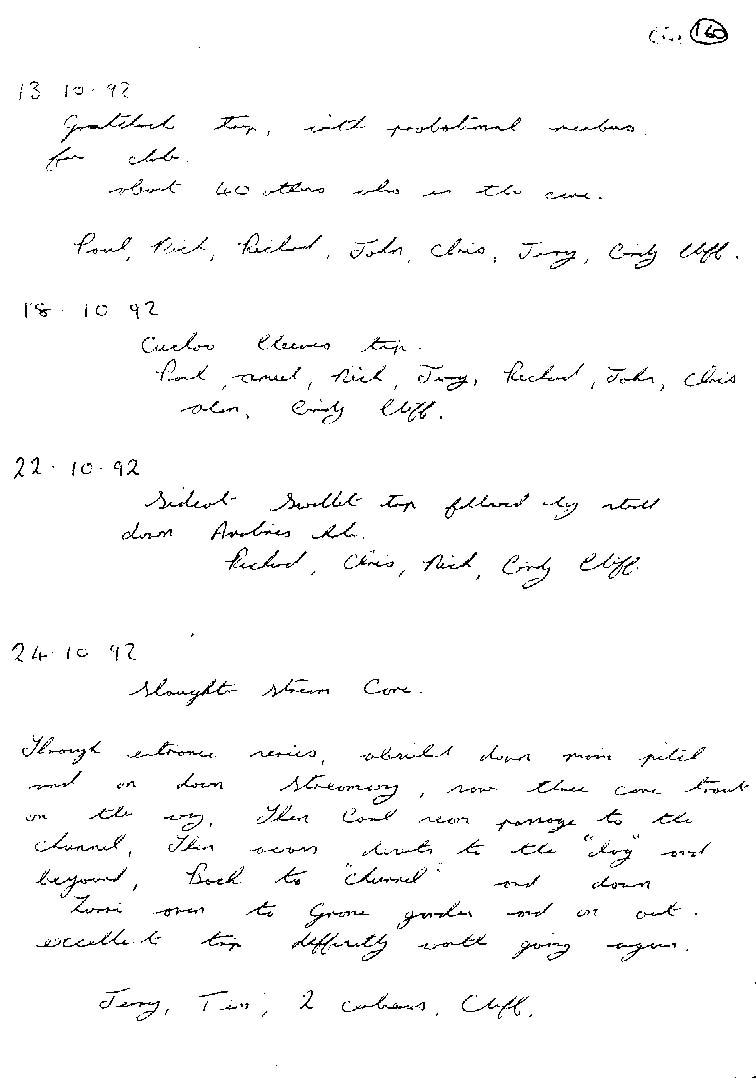 160
13 10.92
trip, with probational members
for club.
about 40 others also in the cave.
Paul, Rich, Richard, John, Chris, Terry, Cindy Cliff.
18.10 92
Cuckoo Cleeves trip.
Paul, Rich, Terry, Richard, John, Chris
Cindy Cliff.
22.10.92
Sidcot Swallet trip followed by
down Avelines hole.
Richard, Chris, Rich, Cindy Cliff.
24.10 92
Slaughter Stream Cave.
Through entrance series, down main pitch
and on down Streamway, saw three cave trout
on the way, Then Coal seam passage to the
channel, Then across to the "dog" and
beyound, Back to "channel" and down
Zurree over to Grone garden and on out.
excellent trip worth going again.
Terry, Tim, 2 Cliff.